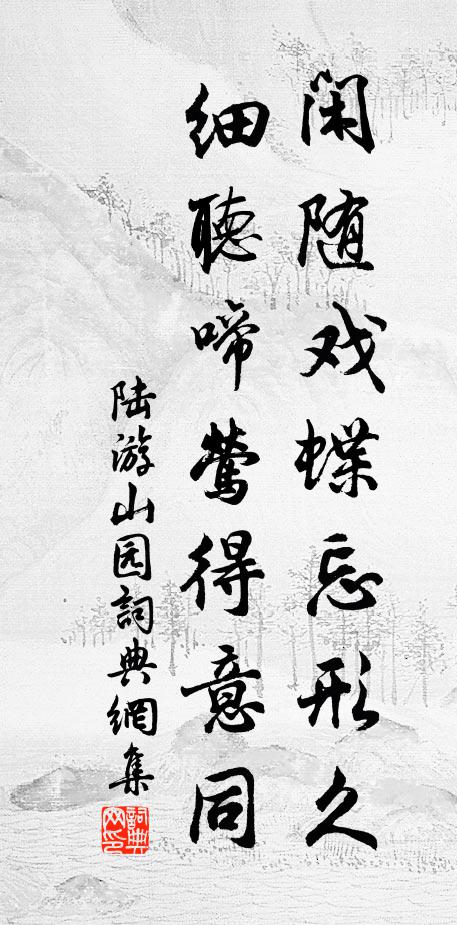 闲随戏蝶忘形久
细聽啼莺得意同
陆游山园詞典網集
詞典网印